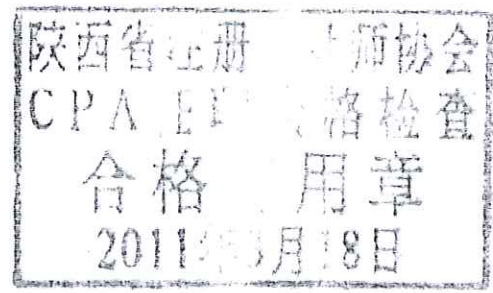 陕西省注册 计师协会
CPA 格检查
合格 用章
2011年 月18日